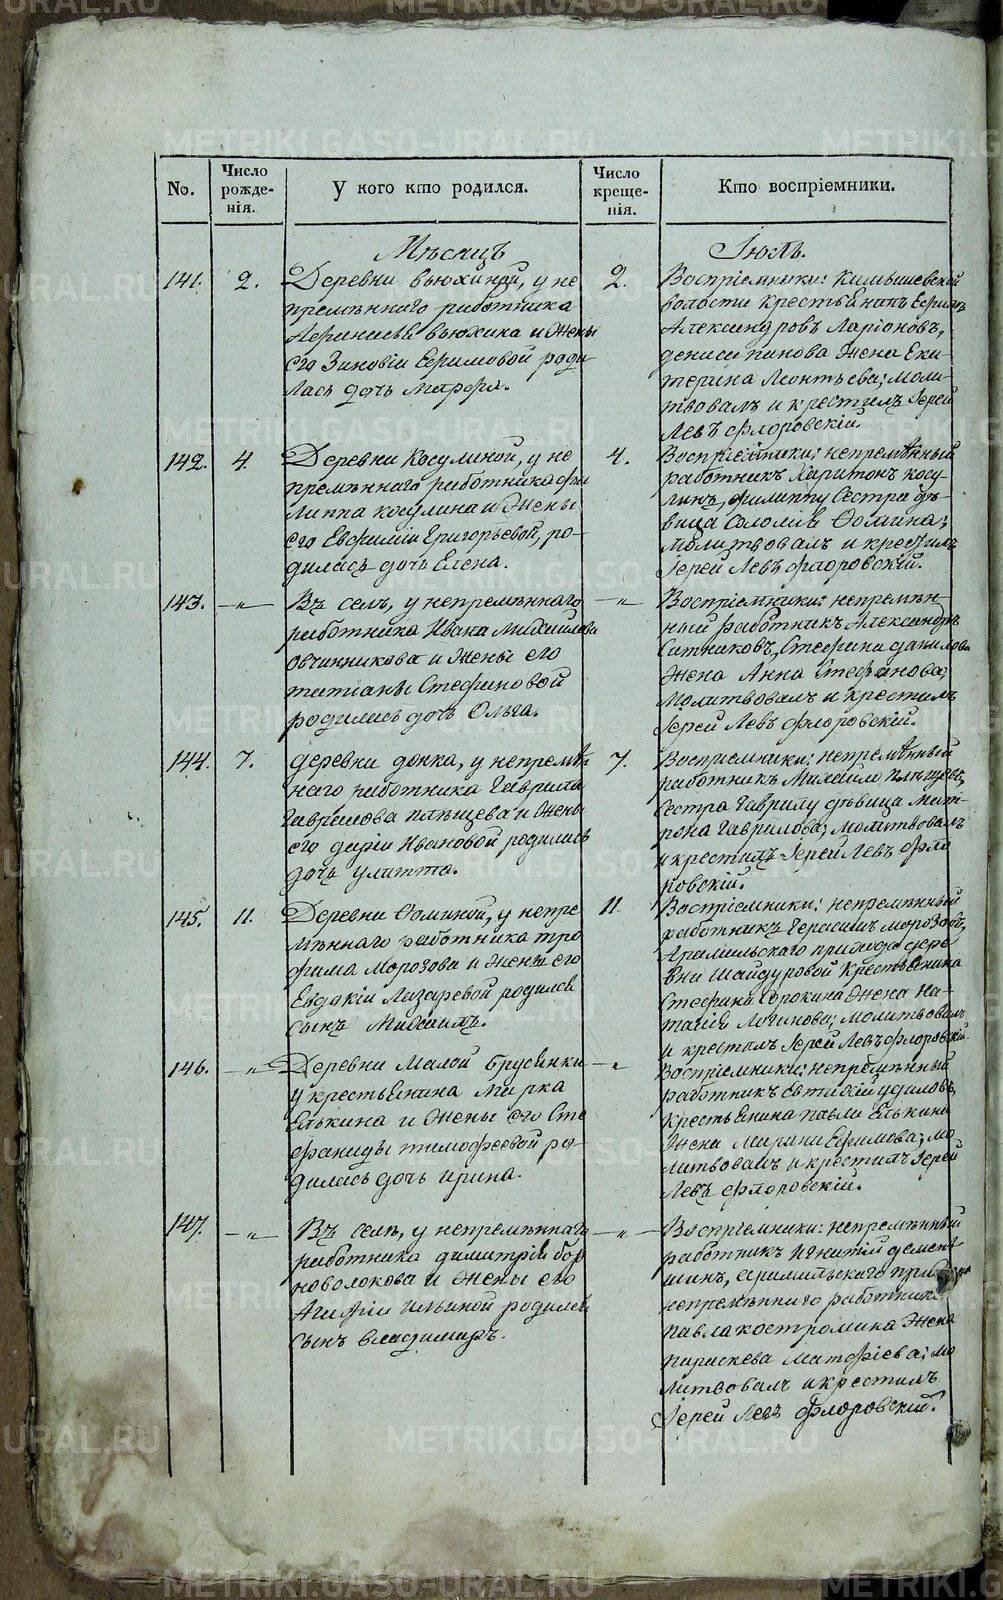 No.
Число рожде-нія.
У кого кто родился.
Число креще-нія.
Кто воспріемники.
Мѣсяцъ Іюль.
141.
2.
Деревни Вьюхиной, у не
премѣннаго работника
Афанасія Вьюхина и жены
его Зиновіи Ефимовой роди
лась дочь Марфа.
2.
Воспріемники: Камышевской
волости крестьянинъ Ефимъ
Александровъ Ларіоновъ,
Дениса Панова жена Ека-
терина Леонтьева; моли-
твовалъ и крестилъ Іерей
Левъ Флоровскій.
142.
4.
Деревни Косулиной, у не
премѣннаго работника Фи
липпа Косулина и жены
его Евфиміи Григорьевой, ро-
дилась дочь Елена.
4.
Воспріемники: непремѣнный
работникъ Харитонъ Косу-
линъ, Филиппу сестра дѣ-
вица Соломія Фомина;
молитвовалъ и крестилъ
Іерей Левъ Флоровскій.
143.
—„—
Въ селѣ, у непремѣннаго
работника Ивана Михайлова
Овчинникова и жены его
Татіаны Стефановой
родилась дочь Ольга.
—„—
Воспріемники: непремѣн-
ный работникъ Александръ
Ситниковъ, Стефана Данилова
жена Анна Стефанова;
молитвовалъ и крестилъ
Іерей Левъ Флоровскій.
144.
7.
деревни
у непремѣн
наго работника Гаврила
Гаврилова Плѣщева и жены
его Даріи Ивановой родилась
дочь Улитта.
7.
Воспріемники: непремѣнный
работникъ Михайло Плѣщевъ,
сестра Гаврилу дѣвица Мат-
рона Гаврилова; молитвовалъ
и крестилъ Іерей Левъ Фло
ровскій.
145.
11.
Деревни Фоминой, у непре
мѣннаго работника Тро
фима Морозова и жены его
Евдокіи Лазаревой родился
сынъ Михаилъ.
11
Воспріемники: непремѣнный
работникъ Герасимъ Морозовъ,
Арамильскаго прихода дере
вни Шайдуровой крестьянина
Стефана Сорокина жена На-
талія Логинова; молитвовалъ
и крестилъ Іерей Левъ Флоровскій.
146.
—„—
Деревни Малой Брусянки
у крестьянина Марка
Елькина и жены его Сте
фаниды Тимофеевой ро-
дилась дочь Ирина.
—„—
Воспріемники: непремѣнный
работникъ Евтихій Удиловъ,
крестьянина Павла Елькина
жена Марина Ефимова; мо
литвовалъ и крестилъ Іерей
Левъ Флоровскій.
147.
—„—
Въ селѣ, у непремѣннаго
работника Димитрія Бор
новолокова и жены его
Агафіи Ильиной родился
сынъ Владимиръ.
—„—
Воспріемники: непремѣнный
работникъ Игнатій Демен
шинъ, Арамильскаго прихода
непремѣннаго работника
Павла Костромина жена
Параскева Матфіева; мо
литвовалъ и крестилъ
Іерей Левъ Флоровскій.
METRIKI.GASO-URAL.RU